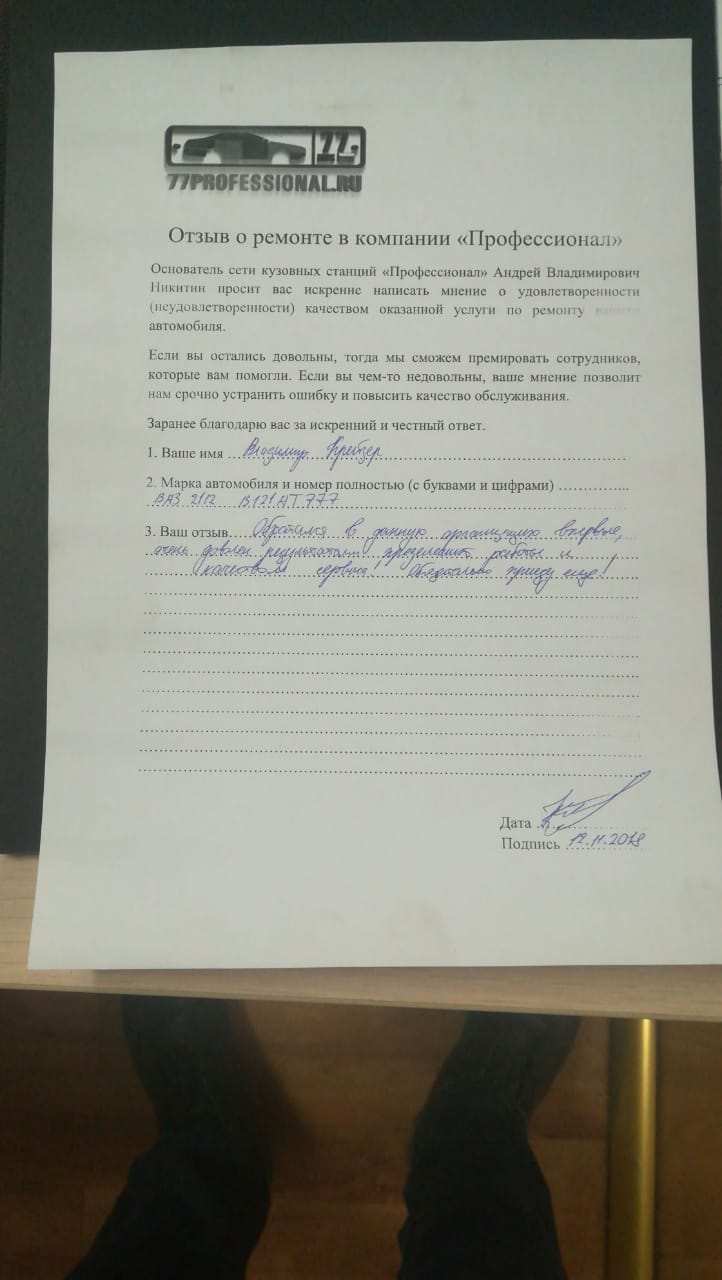 77.
77PROFESSIONAL.RU
Отзыв о ремонте в компании «Профессионал»
Основатель сети кузовных станций «Профессионал» Андрей Владимирович
Никитин просит вас искренне написать мнение о удовлетворенности
(неудовлетворенности) качеством оказанной услуги по ремонту вашего
автомобиля.
Если вы остались довольны, тогда мы сможем премировать сотрудников,
которые вам помогли. Если вы чем-то недовольны, ваше мнение позволит
нам срочно устранить ошибку и повысить качество обслуживания.
Заранее благодарю вас за искренний и честный ответ.
1. Ваше имя Владимир
2. Марка автомобиля и номер полностью (с буквами и цифрами)
ВАЗ 2112 В121АТ777
3. Ваш отзыв Обратился в данную организацию впервые,
очень доволен результатом проделанной работы и
качеством сервиса! Обязательно приеду еще!
Дата
Подпись 12.11.2018